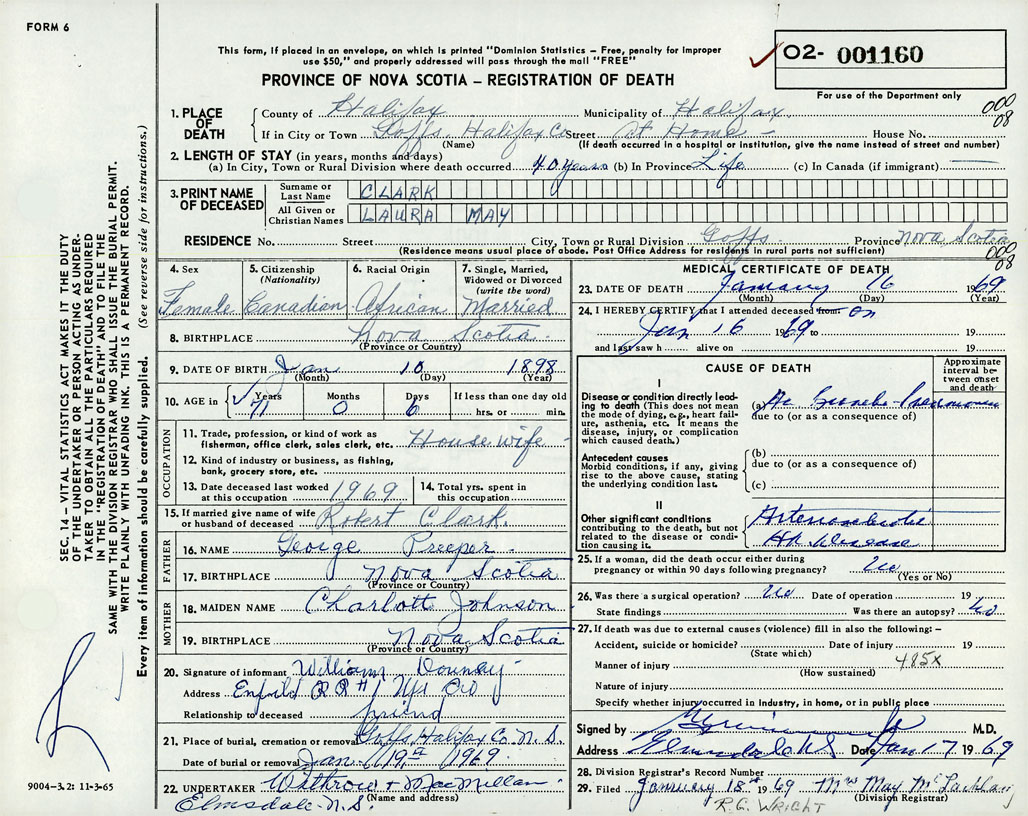 FORM 6
This form, if placed in an envelope, on which is printed "Dominion Statistics – Free, penalty for improper
use $50," and properly addressed will pass through the mail "FREE"
PROVINCE OF NOVA SCOTIA – REGISTRATION OF DEATH
02- 001160
For use of the Department only
000
08
1. PLACE OF DEATH
County of Halifax Municipality of Halifax
If in City or Town Goffs, Halifax Co Street At Home – House No.
(Name) (If death occurred in a hospital or institution, give the name instead of street and number)
2. LENGTH OF STAY (in years, months and days)
(a) In City, Town or Rural Division where death occurred 40 years (b) In Province Life (c) In Canada (if immigrant) —
3. PRINT NAME OF DECEASED
Surname or Last Name CLARK
All Given or Christian Names LAURA MAY
RESIDENCE No. Street City, Town or Rural Division Goffs Province Nova Scotia
(Residence means usual place of abode. Post Office Address for residents in rural parts not sufficient)
000
08
4. Sex
Female
5. Citizenship
(Nationality)
Canadian
6. Racial Origin
African
7. Single, Married,
Widowed or Divorced
(write the word)
Married
8. BIRTHPLACE Nova Scotia
(Province or Country)
9. DATE OF BIRTH Jan 10 1898
(Month) (Day) (Year)
10. AGE in
Years Months Days If less than one day old
71 0 6 hrs. or min.
OCCUPATION
11. Trade, profession, or kind of work as
fisherman, office clerk, sales clerk, etc. Housewife
12. Kind of industry or business, as fishing,
bank, grocery store, etc.
13. Date deceased last worked
at this occupation 1969
14. Total yrs. spent in
this occupation
15. If married give name of wife
or husband of deceased Robert Clark.
FATHER
16. NAME George Preeper
17. BIRTHPLACE Nova Scotia
(Province or Country)
MOTHER
18. MAIDEN NAME Charlott Johnson
19. BIRTHPLACE Nova Scotia
(Province or Country)
20. Signature of informant William
Address Enfield RR #1 Hfx Co
Relationship to deceased friend
21. Place of burial, cremation or removal Goffs Halifax Co. N.S.
Date of burial or removal Jan 19th 1969
22. UNDERTAKER Withrow + MacMillan
(Name and address)
Elmsdale N.S.
MEDICAL CERTIFICATE OF DEATH
23. DATE OF DEATH January 16 1969
(Month) (Day) (Year)
24. I HEREBY CERTIFY that I attended deceased from on
Jan 16 1969 to 19
and last saw h alive on 19
CAUSE OF DEATH
Approximate
interval be-
tween onset
and death
I
Disease or condition directly lead-
ing to death (This does not mean
the mode of dying, e.g., heart fail-
ure, asthenia, etc. It means the
disease, injury, or complication
which caused death.)
(a) Ac Broncho-Pneumonia
due to (or as a consequence of)
Antecedent causes
Morbid conditions, if any, giving
rise to the above cause, stating
the underlying condition last.
(b)
due to (or as a consequence of)
(c)
II
Other significant conditions
contributing to the death, but not
related to the disease or condi-
tion causing it.
Arteriosclerotic
Ht Disease
25. If a woman, did the death occur either during
pregnancy or within 90 days following pregnancy? No
(Yes or No)
26. Was there a surgical operation? No Date of operation 19
State findings Was there an autopsy? No
27. If death was due to external causes (violence) fill in also the following: –
Accident, suicide or homicide? Date of injury 19
(State which)
Manner of injury 485X
(How sustained)
Nature of injury
Specify whether injury occurred in industry, in home, or in public place
Signed by M.D.
Address Elmsdale NS Date Jan 17 1969
28. Division Registrar's Record Number
29. Filed January 18th 1969 Mrs May McLachlan
(Division Registrar)
R.G. WRIGHT
SEC. 14 – VITAL STATISTICS ACT MAKES IT THE DUTY
OF THE UNDERTAKER OR PERSON ACTING AS UNDER-
TAKER TO OBTAIN ALL THE PARTICULARS REQUIRED
IN THE "REGISTRATION OF DEATH" AND TO FILE THE
SAME WITH THE DIVISION REGISTRAR WHO SHALL ISSUE THE BURIAL PERMIT.
WRITE PLAINLY WITH UNFADING INK. THIS IS A PERMANENT RECORD.
Every item of information should be carefully supplied. (See reverse side for instructions.)
9004–3.2: 11-3-65